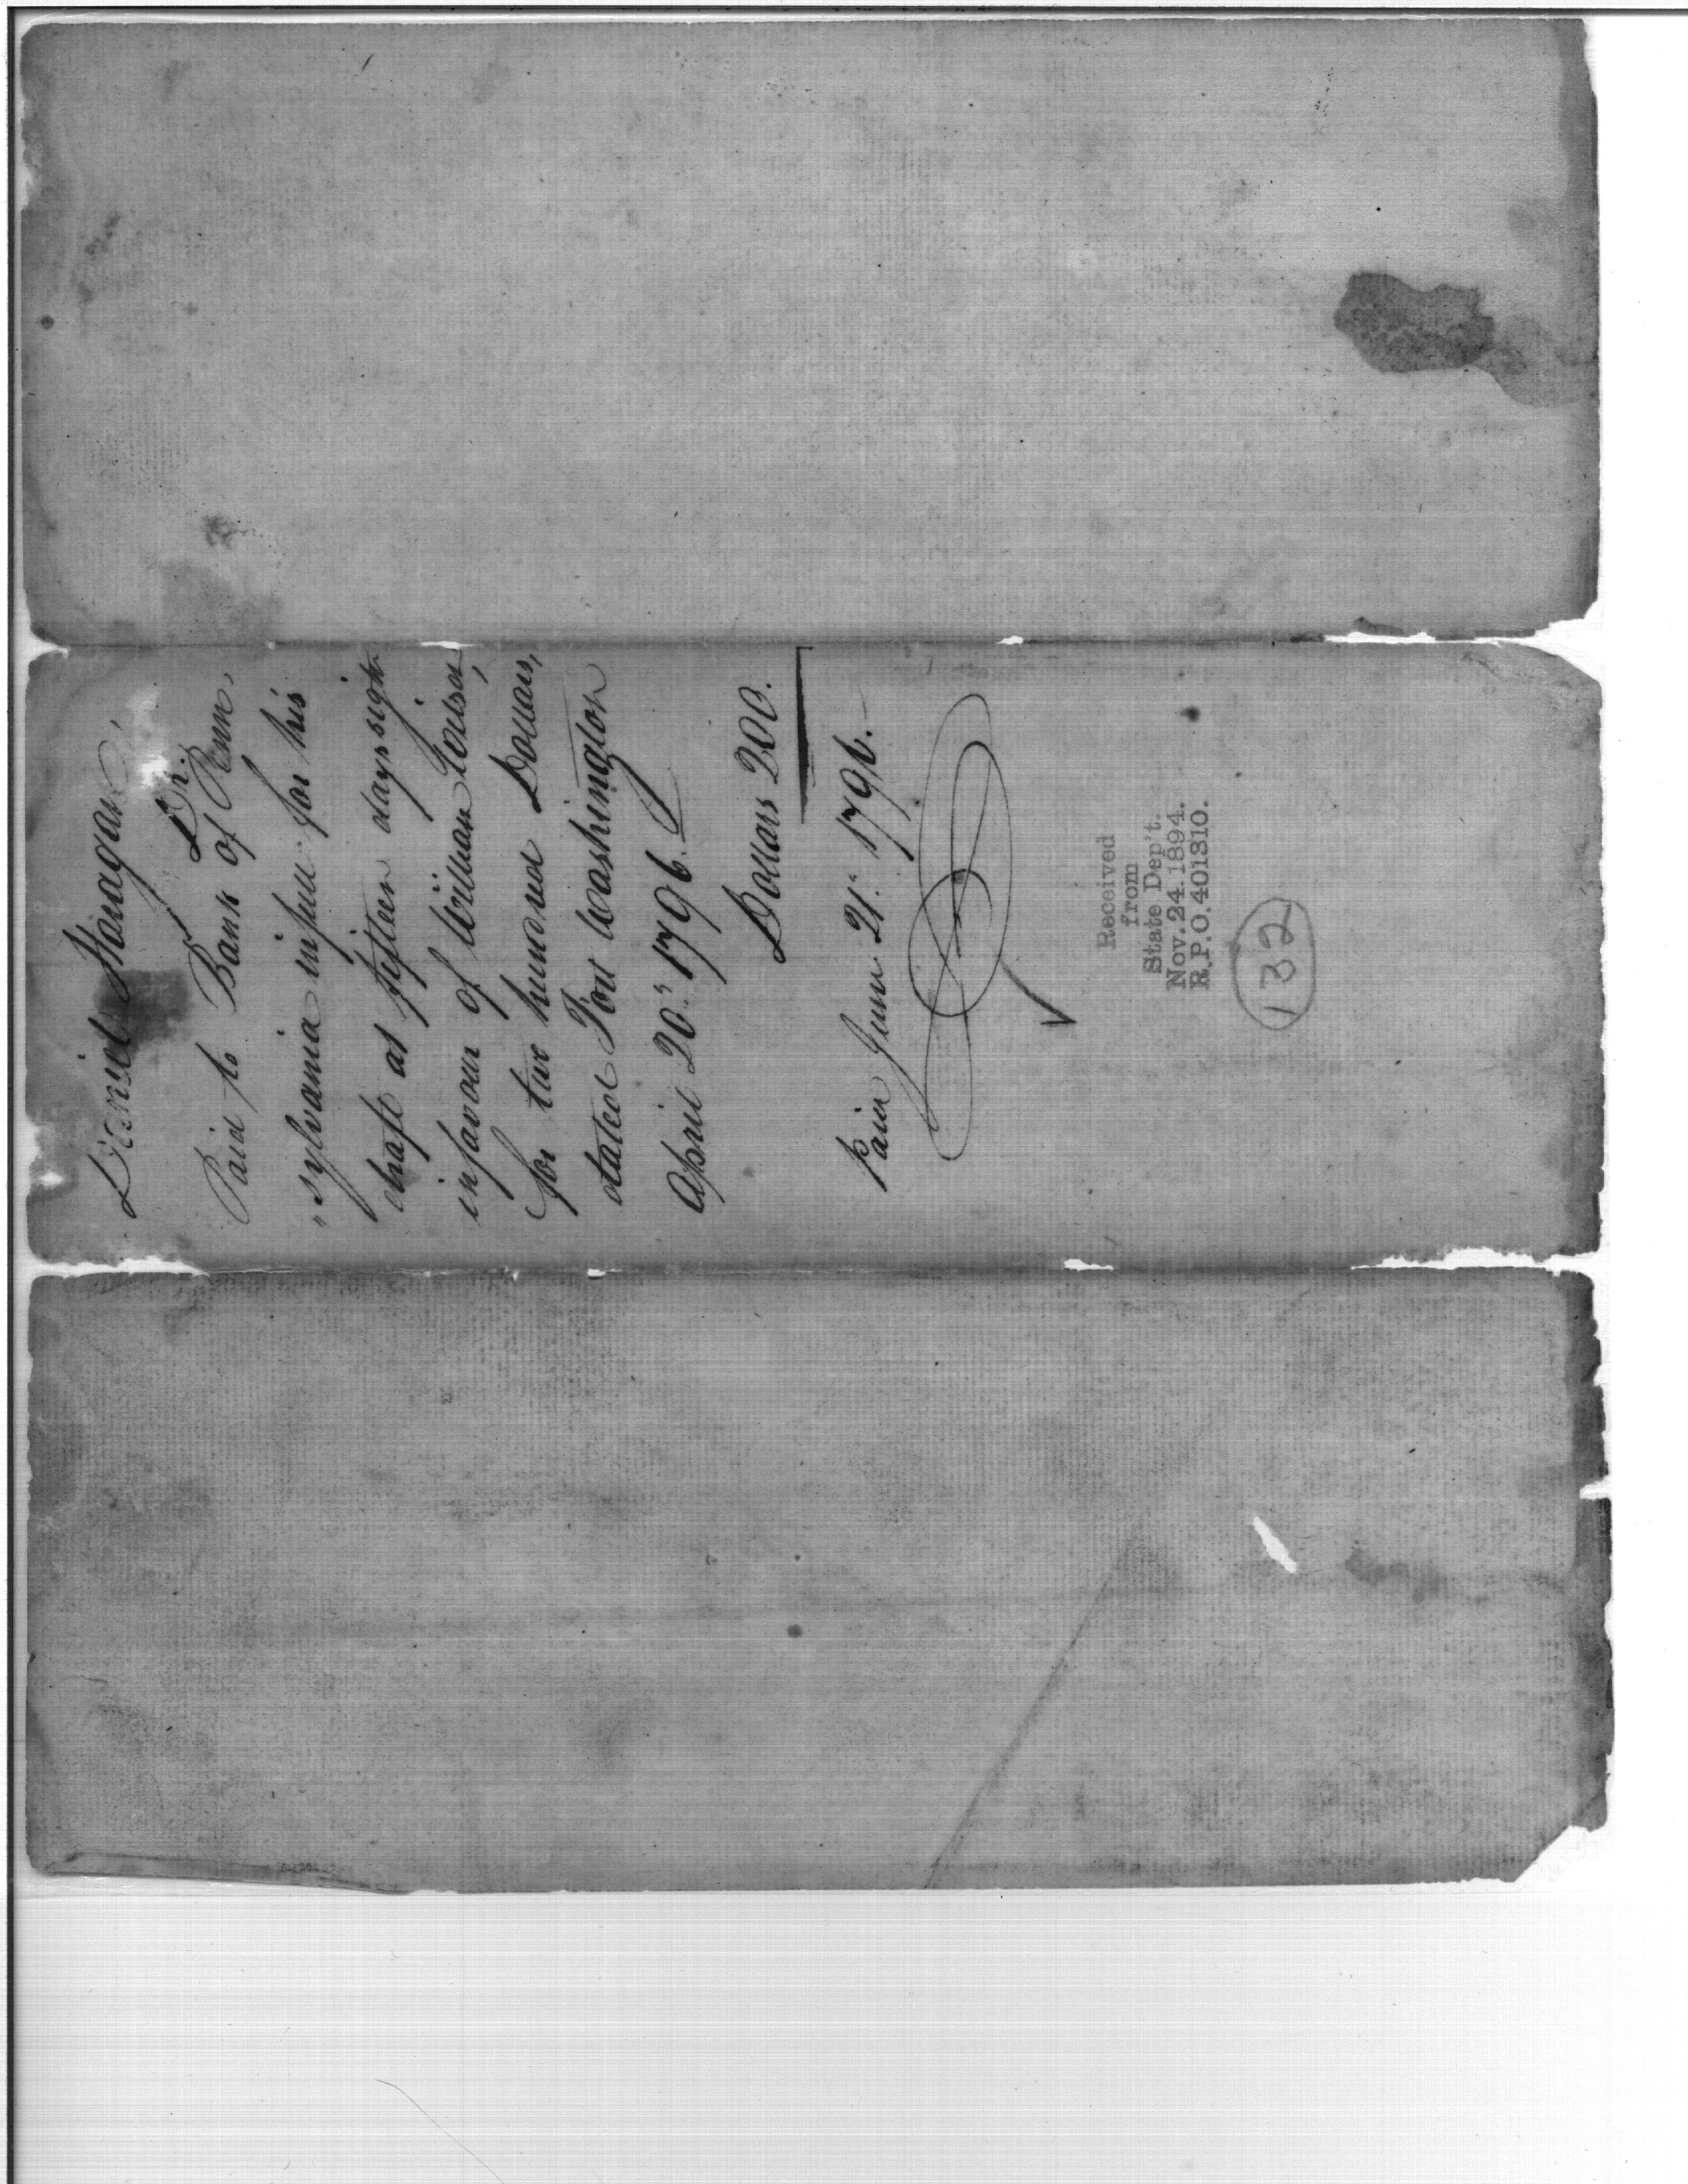 Daniel
Dr.
Paid to Bank of Penn,
„sylvania in full for his
draft at fifteen days sight
in favour of William
for two hundred Dollars,
dated Fort Washington
April 20th 1796.
Dollars 200.
Paid June 21st 1796.
Received
from
State Dep't.
Nov. 24. 1894.
R.P.O. 401310.
132